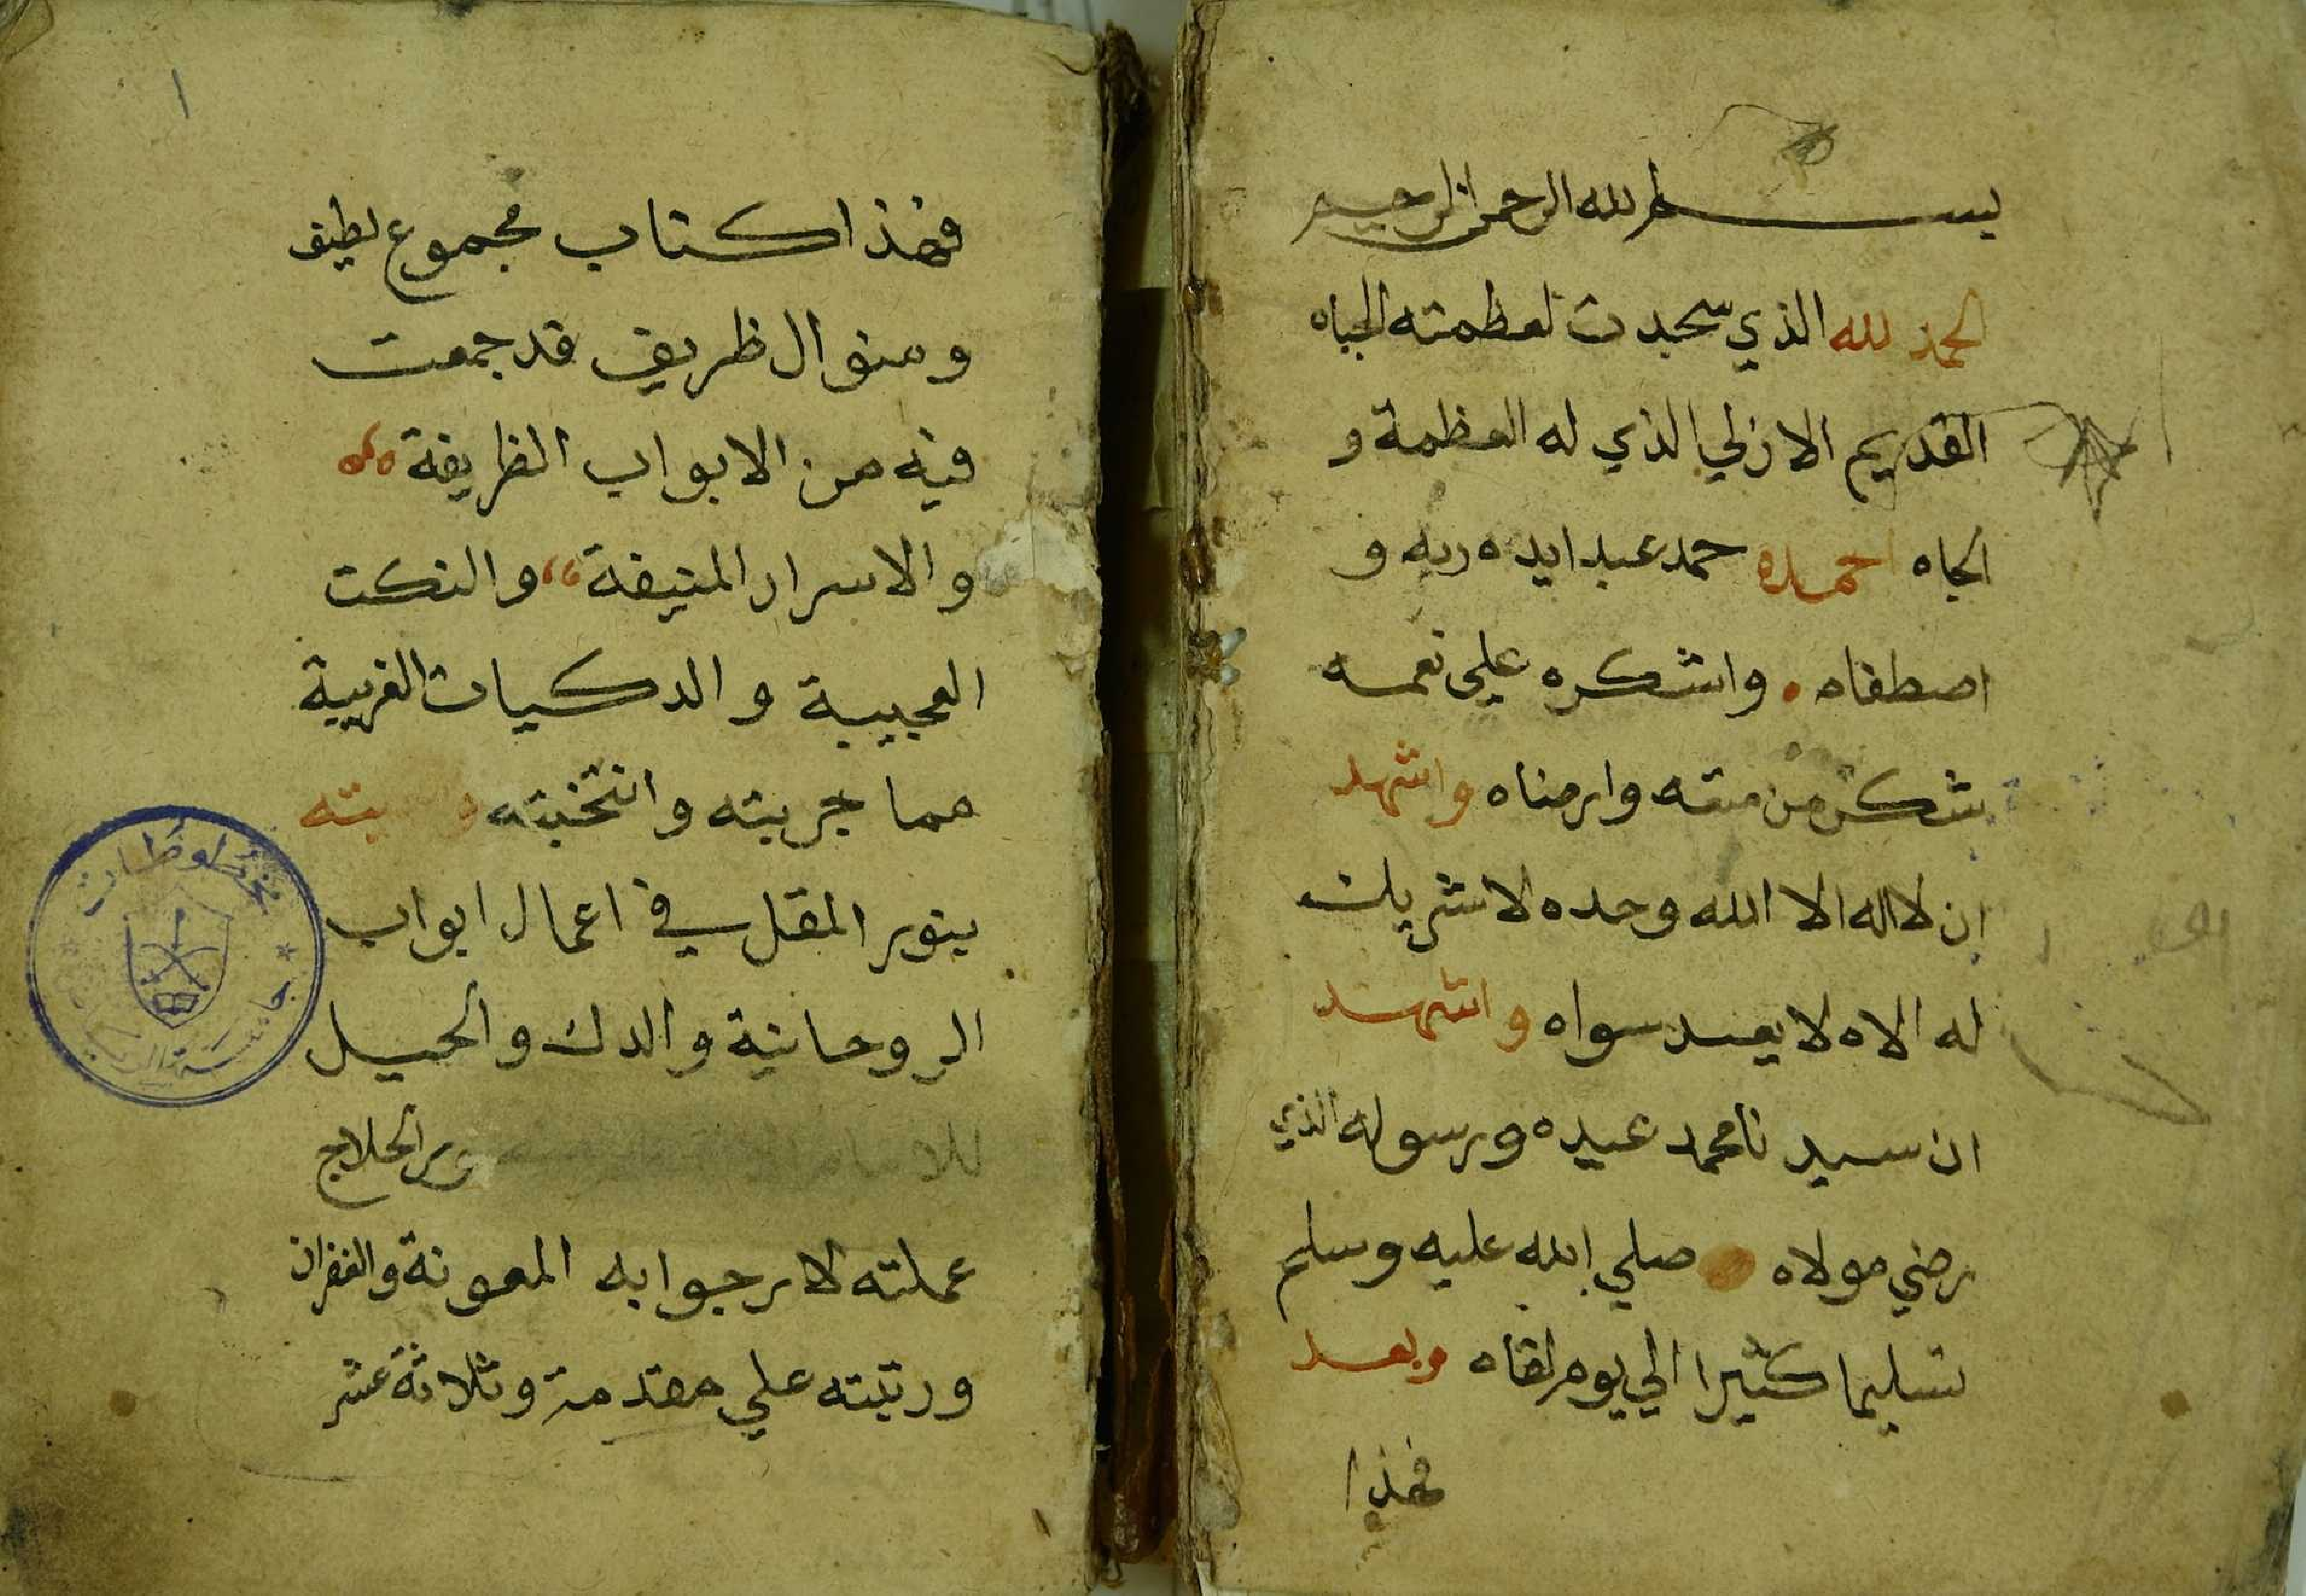 بسم الله الرحمن الرحيم
الحمد لله الذي سجدت لعظمته الجباه
القديم الازلي الذي له العظمة و
الجاه احمده حمد عبد ايده ربه و
اصطفاه . واشكره علي نعمه
شكر من منته وارضاه واشهد
ان لا اله الا الله وحده لا شريك
له الاه لا يعبد سواه واشهد
ان سيدنا محمد عبده ورسوله الذي
رضي مولاه صلي الله عليه وسلم
تسليما كثيرا الي يوم لقاه وبعد
فهذا
١
فهذا كتاب مجموع لطيف
ومنوال ظريف قد جمعت
فيه من الابواب الظريفة
والاسرار المنيفة والنكت
العجيبة والدكيات الغريبة
مما جربته وانتخبته
بنوير المقل في اعمال ابواب
الروحانية والدك والحيل
الحلاج
عملته لارجوا به المعونة والغفران
ورتبته علي مقدمة وثلاثة عشر
مخطوطات
جامعة الرياض